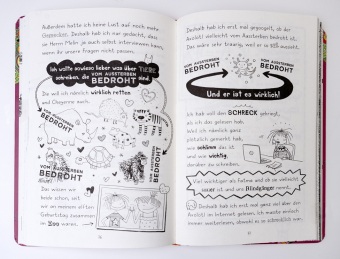 Außerdem hatte ich keine Lust auf noch mehr
Gegacker. Deshalb hab ich nur gedacht, dass
wir Herrn Mohr ja auch selbst interviewen können,
wenn ihr unsere Fragen nicht passen.
Ich wollte sowieso lieber was über TIERE
schreiben, die VOM AUSSTERBEN
BEDROHT sind.
Die will ich nämlich wirklich retten
und Cheyenne auch.
BEDROHT
VOM AUSSTERBEN
BEDROHT
VOM AUSSTERBEN
BEDROHT
Das wissen wir
beide schon, seit
wir an meinem elften
Geburtstag zusammen
im Zoo waren.
Deshalb hab ich erst mal gegoogelt, ob der
Axolotl vielleicht vom Aussterben bedroht ist.
Das wäre sehr traurig, weil er so süß aussieht.
VOM AUSSTERBEN
BEDROHT
VOM AUSSTERBEN
BEDROHT
Und er ist es wirklich!
Ich hab voll den SCHRECK gekriegt,
als ich das gelesen hab.
Weil ich nämlich ganz
plötzlich gemerkt hab,
wie schlimm das ist
und wie wichtig,
darüber
zu schreiben.
Viel wichtiger als Fatima und ob sie vielleicht
sauer ist und uns Blindgänger nennt.
Deshalb hab ich erst mal ganz viel über den
Axolotl im Internet gelesen. Ich musste einfach
immer weiterlesen, obwohl es so traurig war.